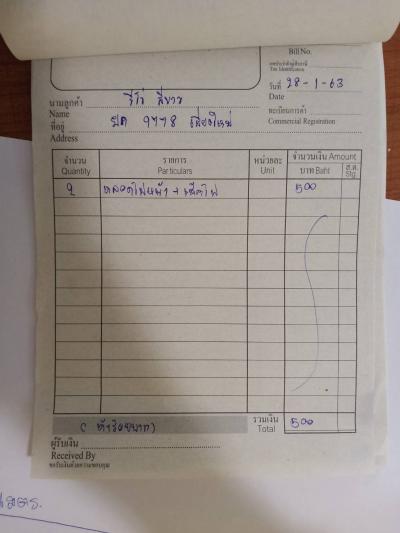 Bill No.
เลขประจำตัวผู้เสียภาษี
Tax Identification
วันที่ 28-1-63
Date
นามลูกค้า รีโว่ สีขาว
Name
ทะเบียนการค้า
Commercial Registration
ที่อยู่ ขค 9778 เชียงใหม่
Address
จำนวน รายการ หน่วยละ จำนวนเงิน Amount
Quantity Particulars Unit บาท Baht ส.ต. Stg.
2 หลอดไฟหน้า + เช็คไฟ 500
( ห้าร้อยบาท) รวมเงิน 500
Total
ผู้รับเงิน
Received By
ขอรับเงินด้วยความขอบคุณ